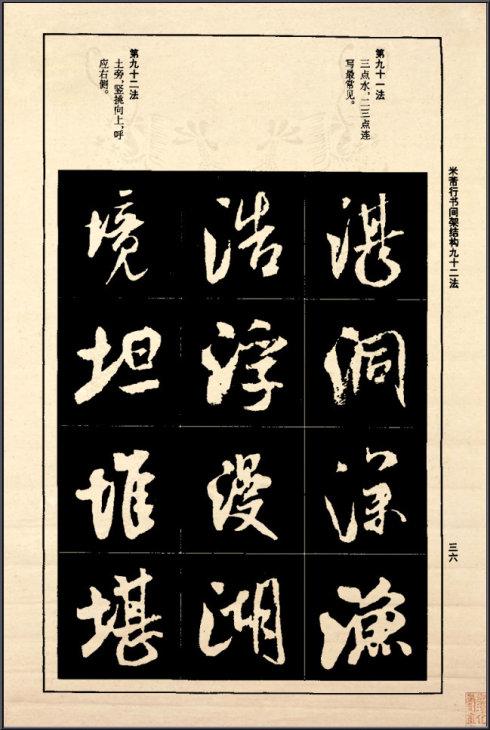 米芾行书间架结构九十二法
三六
第九十一法
三点水，二三点连
写最常见。
第九十二法
土旁，竖挑向上，呼
应右侧。
湛洞深渔
浩浮漫湖
境坦堆堪